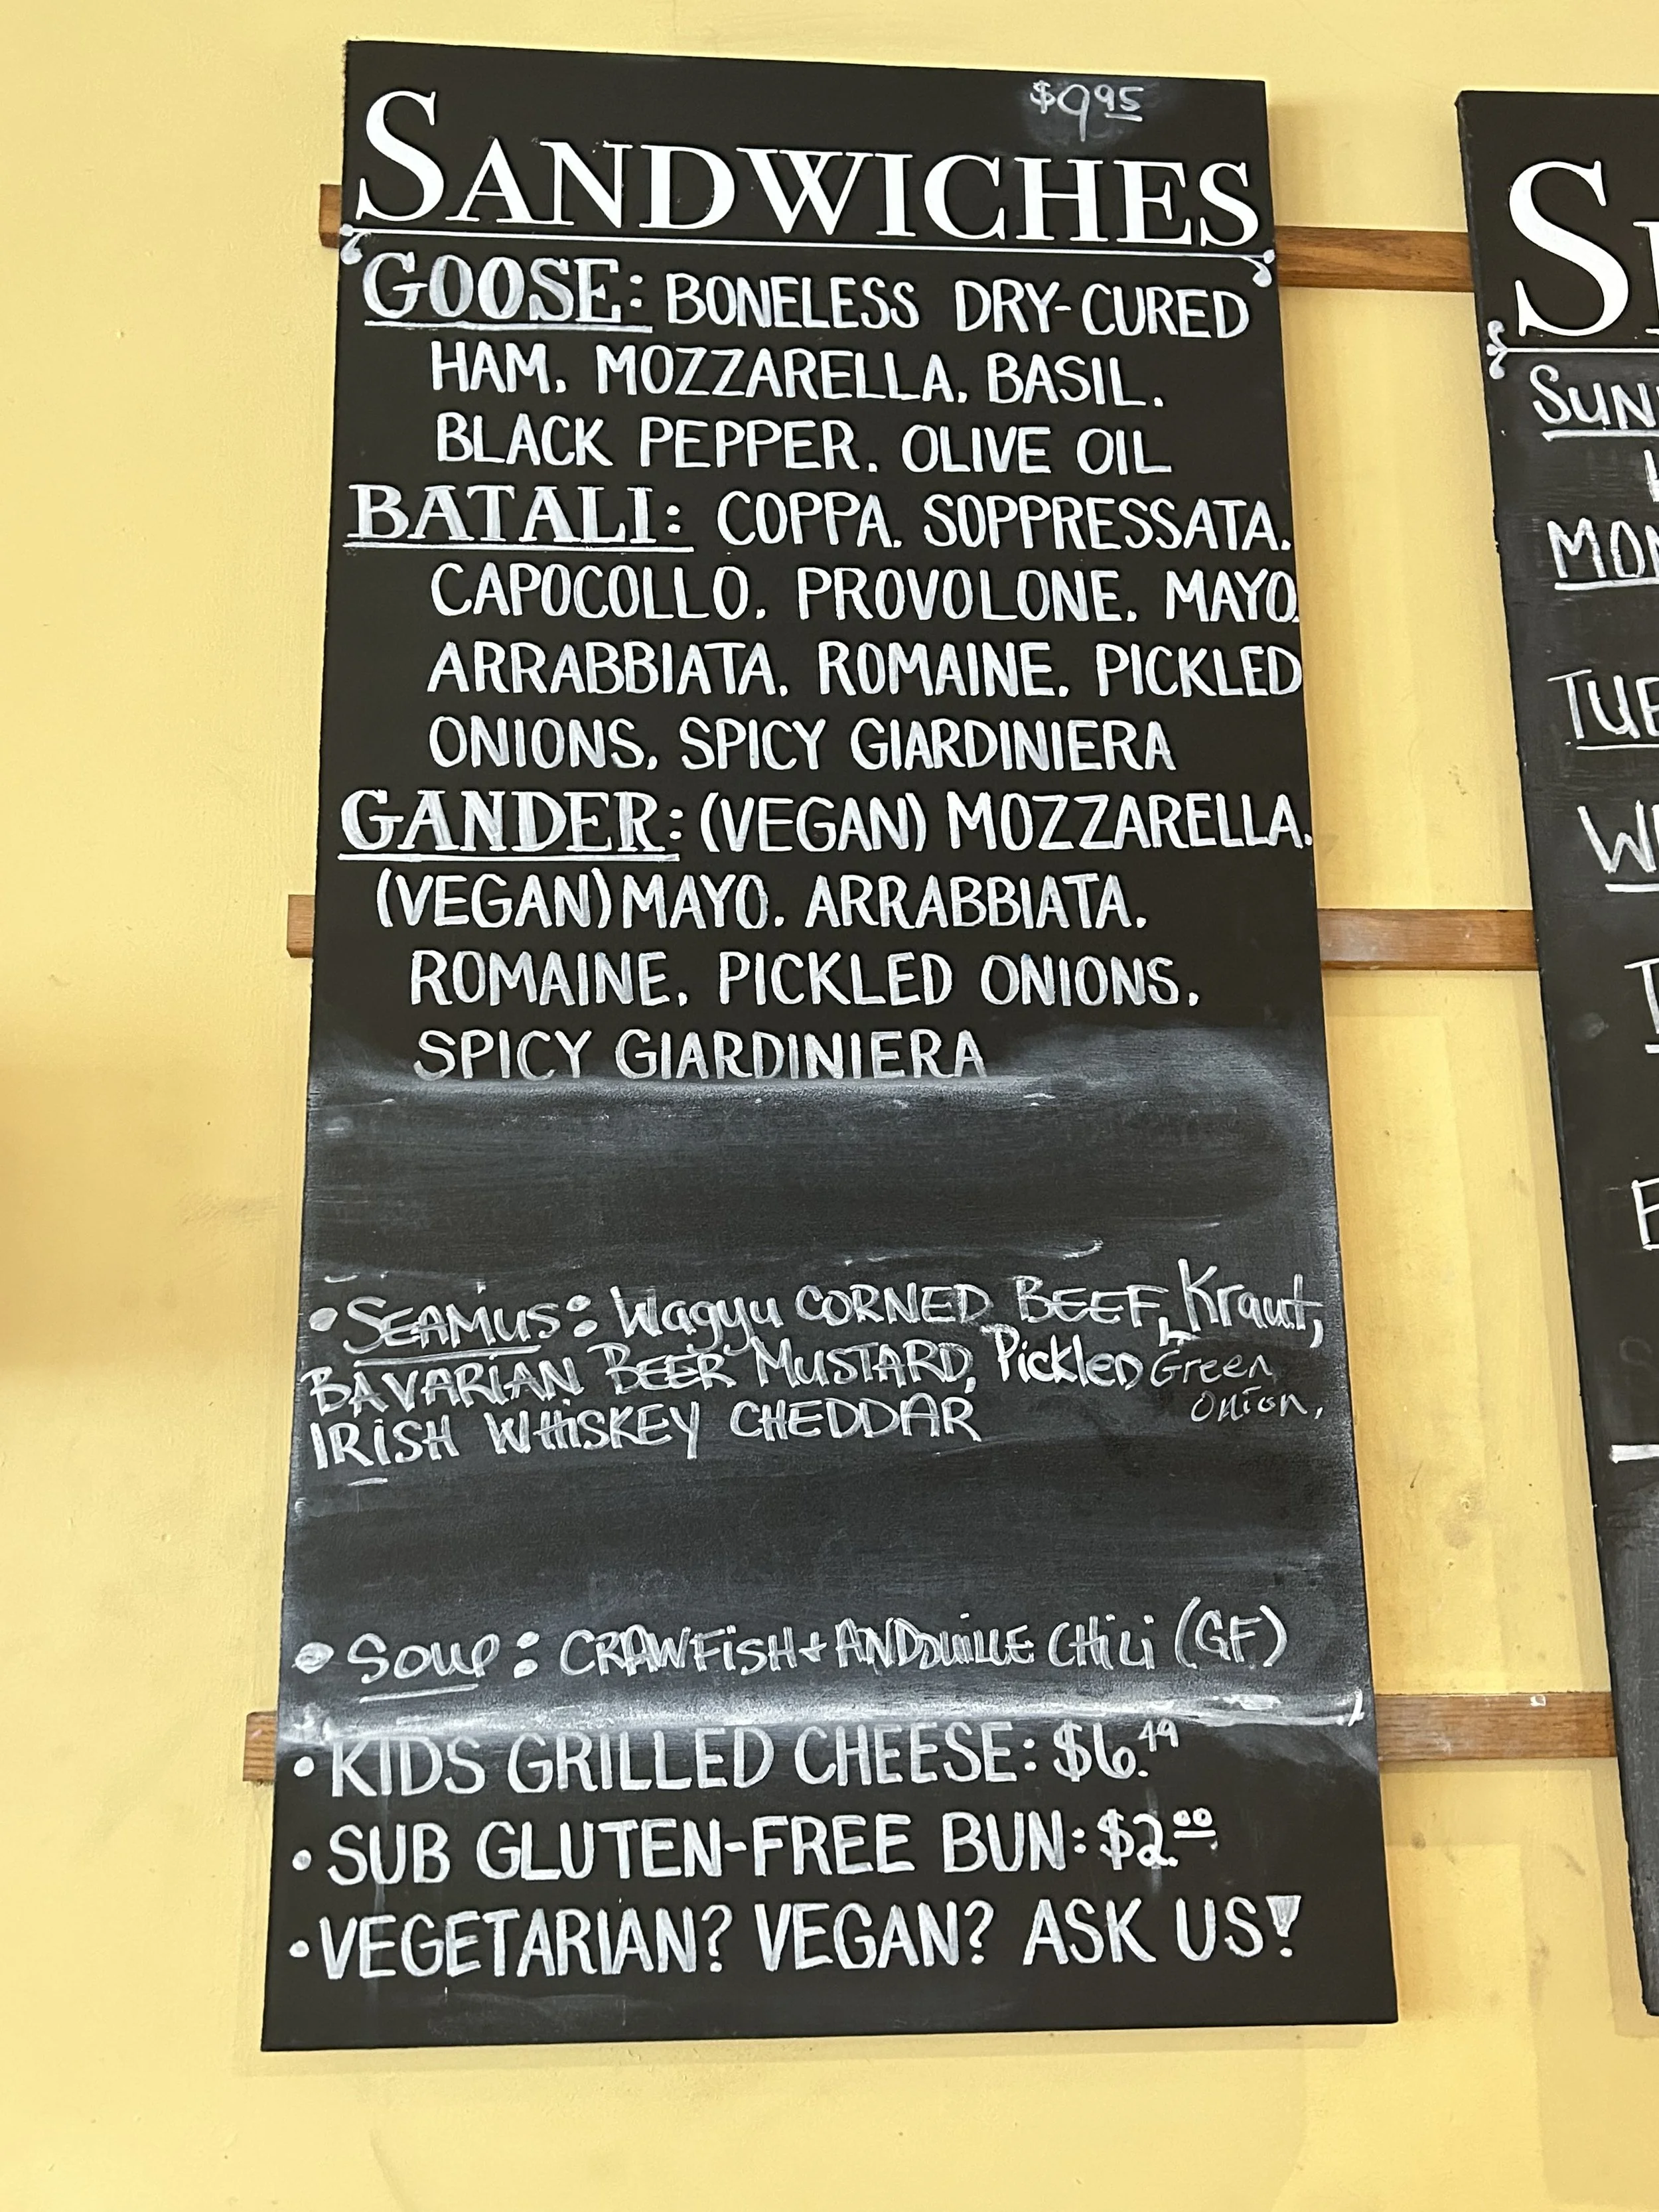 $9.95
SANDWICHES
GOOSE: BONELESS DRY-CURED
HAM. MOZZARELLA. BASIL.
BLACK PEPPER. OLIVE OIL
BATALI: COPPA. SOPPRESSATA.
CAPOCOLLO. PROVOLONE. MAYO.
ARRABBIATA. ROMAINE. PICKLED
ONIONS. SPICY GIARDINIERA
GANDER: (VEGAN) MOZZARELLA.
(VEGAN) MAYO. ARRABBIATA.
ROMAINE. PICKLED ONIONS.
SPICY GIARDINIERA
• SEAMUS: Wagyu CORNED BEEF, Kraut,
BAVARIAN BEER MUSTARD, Pickled Green
Onion,
IRISH WHISKEY CHEDDAR
• Soup: CRAWFISH + ANDOUILLE CHILI (GF)
• KIDS GRILLED CHEESE: $6.49
• SUB GLUTEN-FREE BUN: $2.00
• VEGETARIAN? VEGAN? ASK US!
SUN
MON
TUE